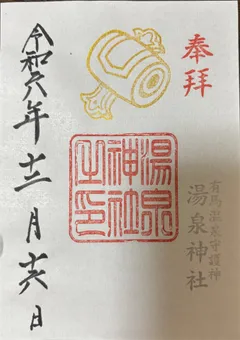 奉拝
有馬温泉守護神
湯泉神社
湯泉神社之印
令和六年十二月十六日